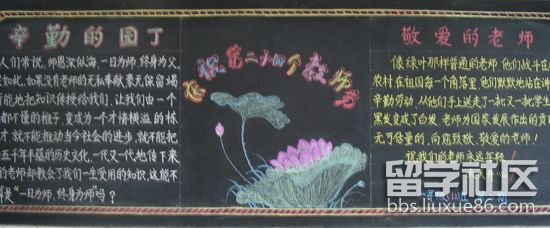 辛勤的园丁
人们常说，师恩深似海，一日为师，终身为父，
如此，如果没有老师的无私奉献，毫无保留竭
能地把知识传授给我们，让我们由一个
都不懂的稚子，变成为一个才情横溢的栋
才，就不能推动当今社会的进步，就不能把
五十年丰蕴的历史文化，一代又一代地传下来
的老师却教会了我们一生受用的知识，这能不
是“一日为师，终身为师”吗？
祝第二十四个教师节
敬爱的老师
像绿叶那样普通的老师，他们战斗在
农村在祖国每一个角落里，他们默默地站在讲
辛勤劳动，从他们手上送走了一批又一批学生
黑发变成了白发，老师为国家发展作出的贡
无可估量的，向您致敬，敬爱的老师！
祝我们的老师永远年轻！
留学社区
bbs.liuxue86.com